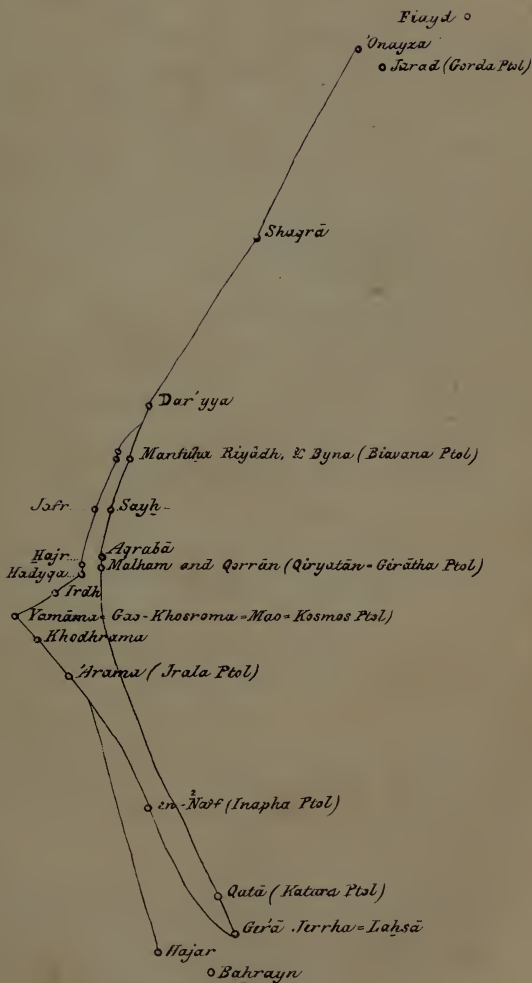 Fiayd
'Onayza
Jarad (Gorda Ptol)
Shaqrā
Dar'yya
Manfuḥa Riyâdh, & Byna (Biavana Ptol)
Jafr
Sayḥ
Aqrabā
Hajr
Malham and Qorrān (Qiryatān = Girātha Ptol)
Hadyqa
Irdh
Yamāma = Gao-Khosroma = Mao = Kosmos Ptol)
Khodhrama
'Arama (Irala Ptol)
en-Naīf (Inapha Ptol)
Qatā (Katara Ptol)
Ger'ā Jerrha = Laḥsā
Hajar
Bahrayn